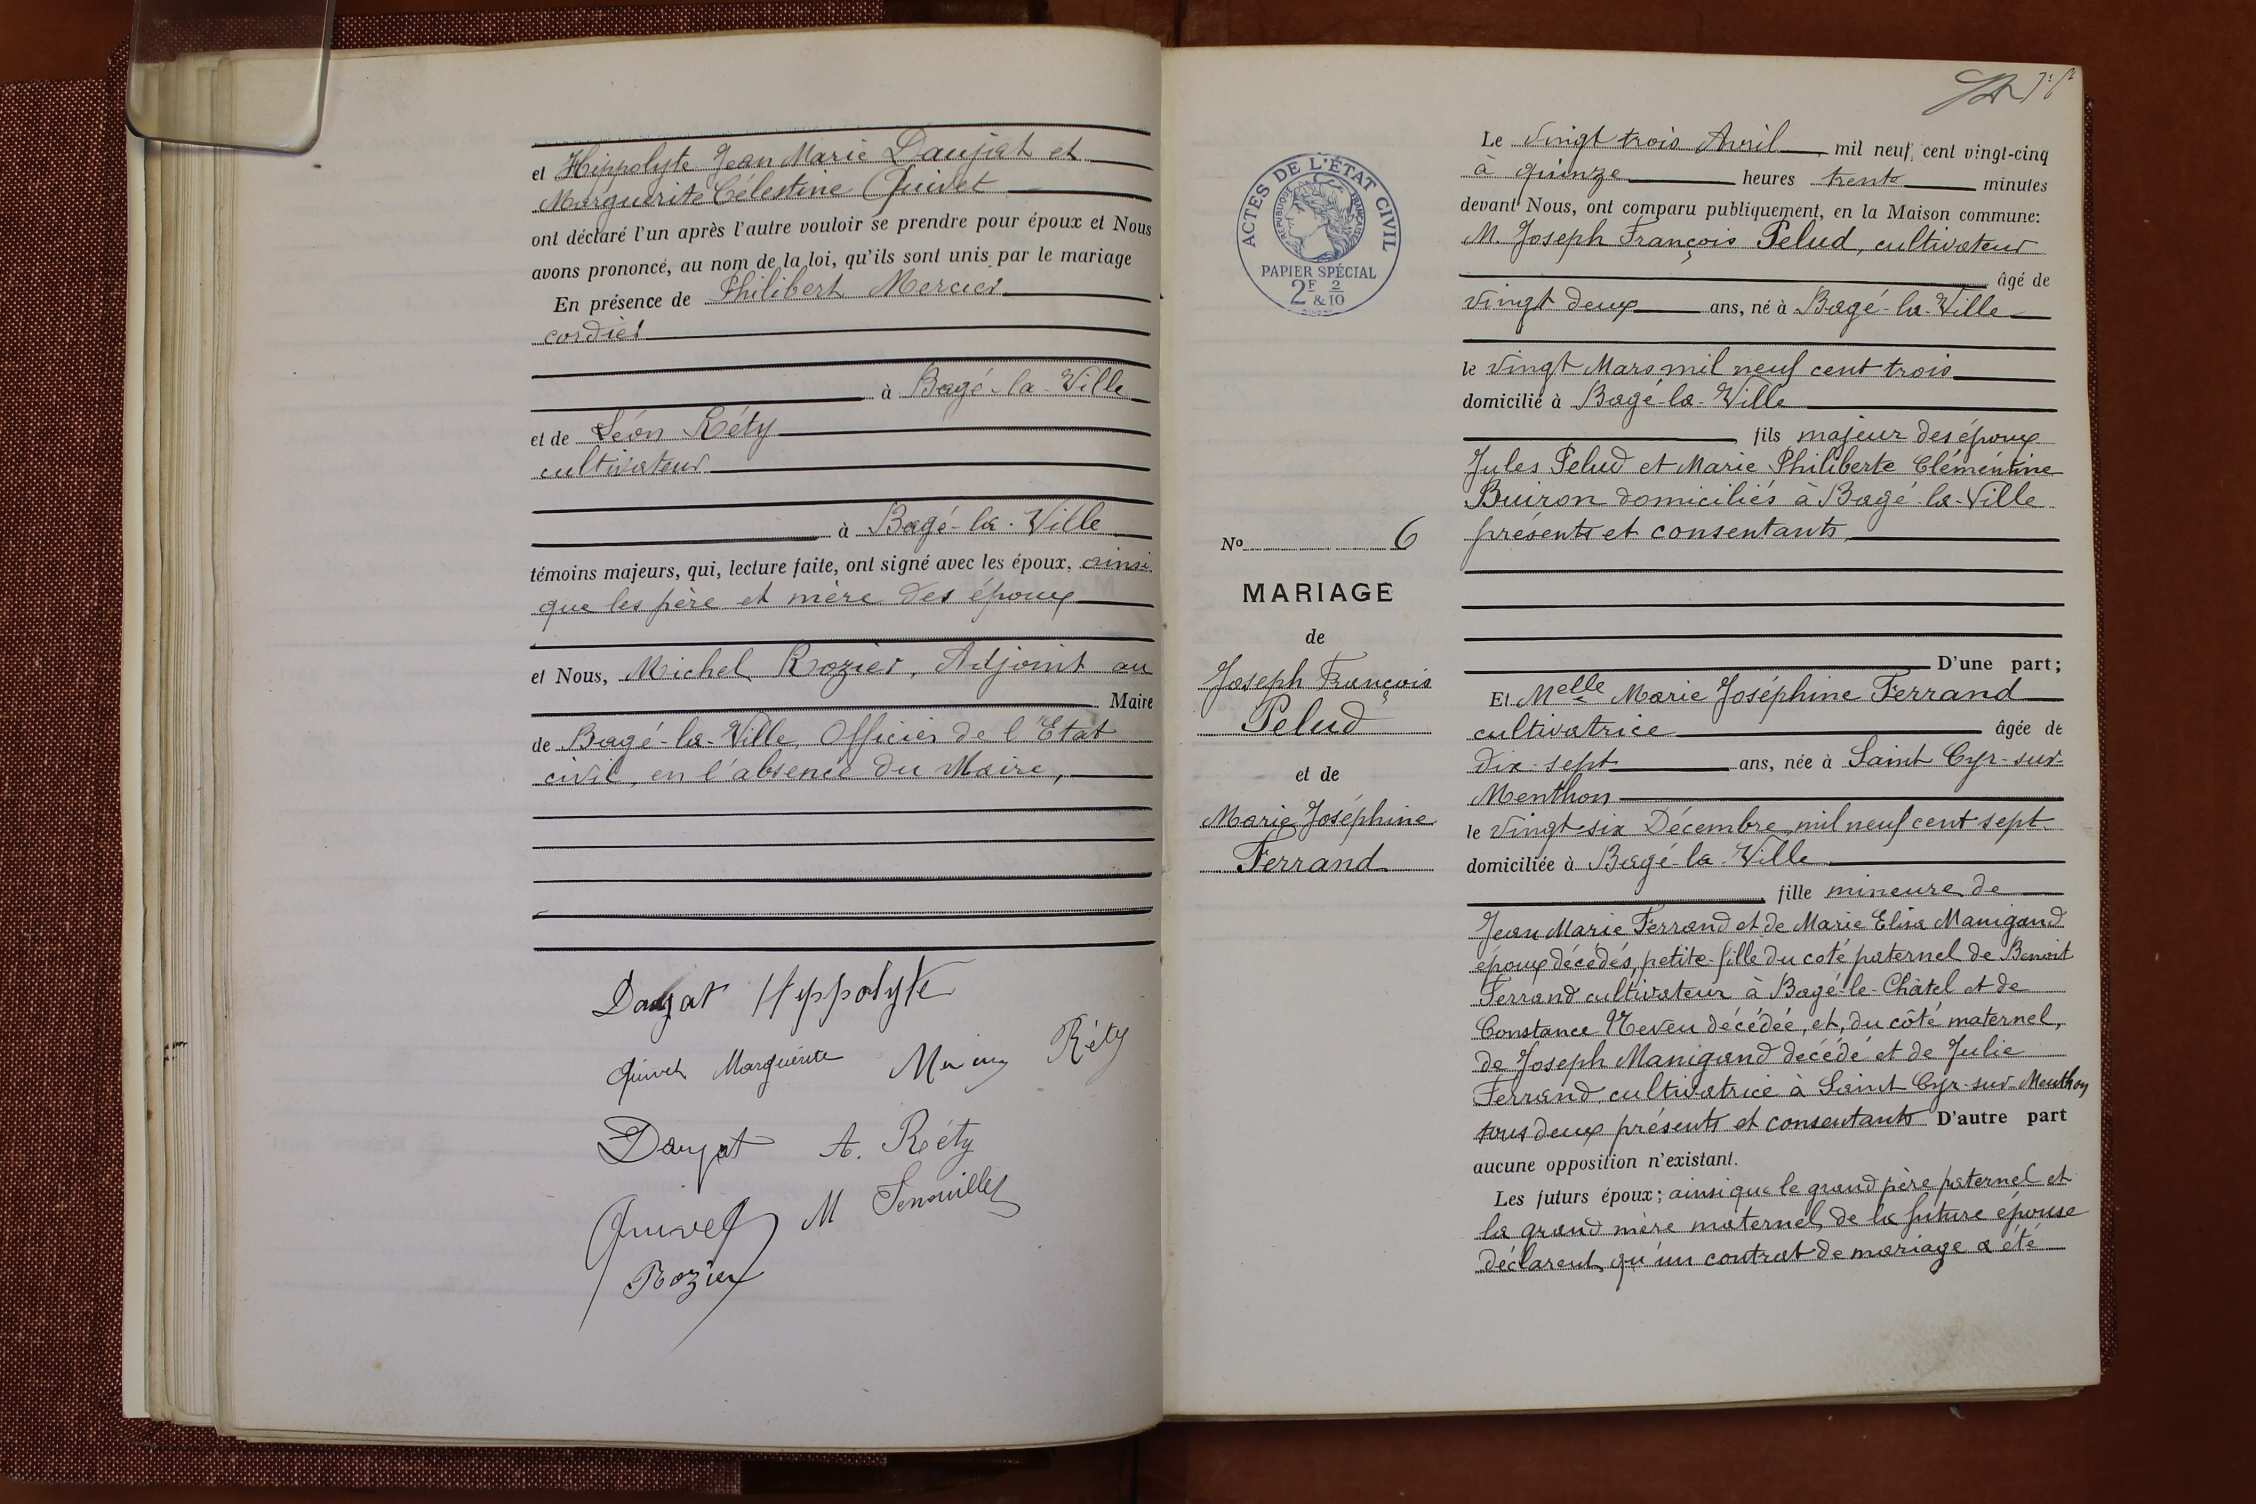 et Hippolyte Jean Marie Daujat et
Marguerite Célestine Quivet
ont déclaré l'un après l'autre vouloir se prendre pour époux et Nous
avons prononcé, au nom de la loi, qu'ils sont unis par le mariage
En présence de Philibert Mercier
cordier
à Bagé-la-Ville
et de Léon Réty
cultivateur
à Bagé-la-Ville
témoins majeurs, qui, lecture faite, ont signé avec les époux, ainsi
que les père et mère des époux
et Nous, Michel Rozier, Adjoint au
Maire
de Bagé-la-Ville, Officier de l'Etat
civil, en l'absence du Maire,
Daujat Hyppolyte
Quivet Marguerite Réty
Daujat A. Réty
Quivet M
Rozier
ACTES DE L'ÉTAT CIVIL
RÉPUBLIQUE FRANÇAISE
PAPIER SPÉCIAL
2F 2
& 10
No 6
MARIAGE
de
Joseph François
Pelud
et de
Marie Joséphine
Ferrand
Le vingt trois Avril mil neuf cent vingt-cinq
à quinze heures trente minutes
devant Nous, ont comparu publiquement, en la Maison commune:
M. Joseph François Pelud, cultivateur
âgé de
vingt deux ans, né à Bagé-la-Ville
le vingt Mars mil neuf cent trois
domicilié à Bagé-la-Ville
fils majeur des époux
Jules Pelud et Marie Philiberte Clémentine
Buiron domiciliés à Bagé-la-Ville
présents et consentants,
D'une part;
Et Melle Marie Joséphine Ferrand
cultivatrice âgée de
dix-sept ans, née à Saint Cyr-sur-
Menthon
le vingt six Décembre mil neuf cent sept
domiciliée à Bagé-la-Ville
fille mineure de
Jean Marie Ferrand et de Marie Elisa Manigand
époux décédés, petite-fille du coté paternel de Benoit
Ferrand cultivateur à Bagé-le-Châtel et de
Constance Neveu décédée, et, du côté maternel,
de Joseph Manigand décédé et de Julie
Ferrand, cultivatrice à Saint Cyr-sur-Menthon
tous deux présents et consentants D'autre part
aucune opposition n'existant.
Les futurs époux; ainsi que le grand père paternel et
la grand mère maternel de la future épouse
déclarent qu'un contrat de mariage a été